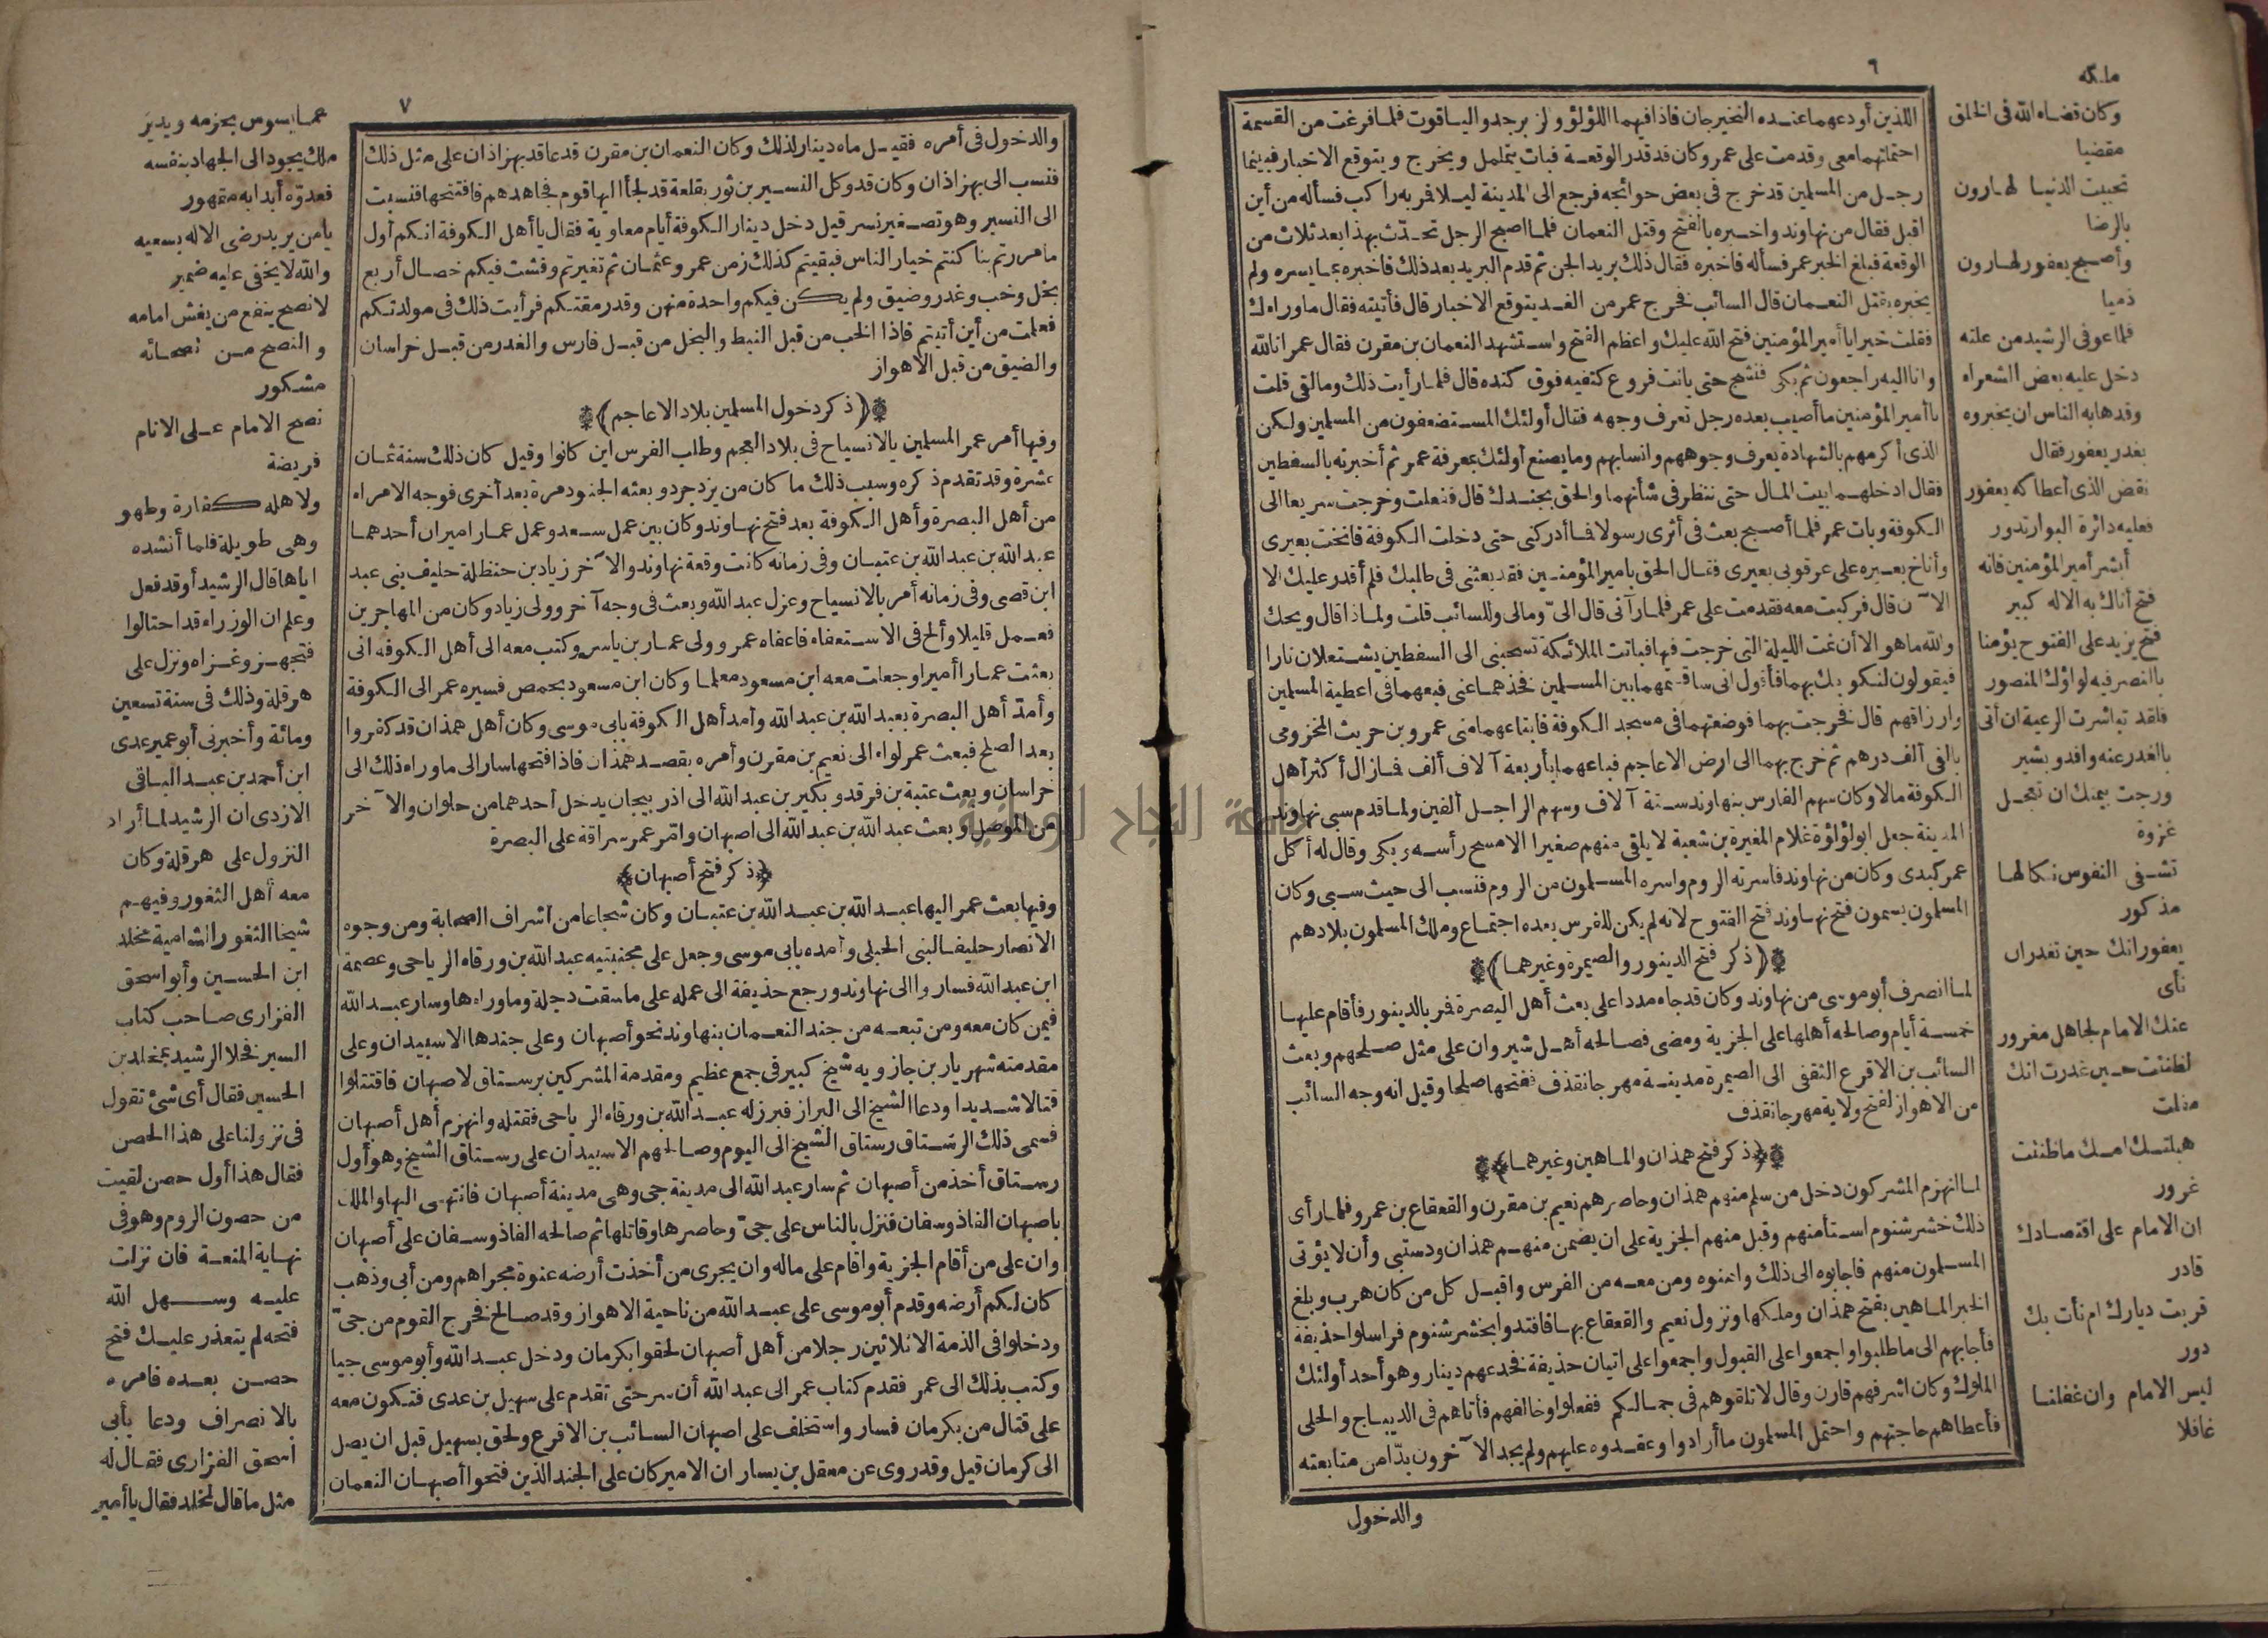 ٦
اللذين أودعهما عنده النخيرجان فاذا فيهما اللؤلؤ والزبرجد والياقوت فلما فرغت من القسمة
احتملتهما معى وقدمت على عمر وكان قد قدر الوقعة فبات يتململ ويخرج ويتوقع الاخبار فبينما
رجل من المسلمين قد خرج فى بعض حوائجه فرجع الى المدينة ليلا فمر به راكب فسأله من أين
اقبل فقال من نهاوند واخبره بالفتح وقتل النعمان فلما اصبح الرجل تحدّث بهذا بعد ثلاث من
الوقعة فبلغ الخبر عمر فسأله فاخبره فقال ذلك بريد الجن ثم قدم البريد بعد ذلك فاخبره بما يسره ولم
يخبره بقتل النعمان قال السائب فخرج عمر من الغد يتوقع الاخبار قال فأتيته فقال ماوراءك
فقلت خيرا يا أمير المؤمنين فتح الله عليك واعظم الفتح واستشهد النعمان بن مقرن فقال عمر انا لله
وانا اليه راجعون ثم بكى فنشج حتى بانت فروع كتفيه فوق كتده قال فلما رأيت ذلك وما لقى قلت
يا أمير المؤمنين ما أصيب بعده رجل تعرف وجهه فقال أولئك المستضعفون من المسلمين ولكن
الذى أكرمهم بالشهادة يعرف وجوههم وانسابهم وما يصنع أولئك بمعرفة عمر ثم أخبرته بالسفطين
فقال ادخلهما بيت المال حتى ننظر فى شأنهما والحق بجندك قال ففعلت وخرجت سريعا الى
الكوفة وبات عمر فلما أصبح بعث فى أثرى رسولا فما أدركنى حتى دخلت الكوفة فانخت بعيرى
وأناخ بعيره على عرقوبى بعيرى فقال الحق بامير المؤمنين فقد بعثنى فى طلبك فلم أقدر عليك الا
الآن قال فركبت معه فقدمت على عمر فلما رآنى قال الىّ ومالى وللسائب قلت ولماذا قال ويحك
والله ما هو الا أن نمت الليلة التى خرجت فيها فباتت الملائكة تسحبنى الى السفطين يشتعلان نارا
فيقولون لنكوينك بهما فأقول انى ساقسمهما بين المسلمين فخذهما عنى فبعهما فى اعطية المسلمين
وارزاقهم قال فخرجت بهما فوضعتهما فى مسجد الكوفة فابتاعهما منى عمرو بن حريث المخزومى
بالفى ألف درهم ثم خرج بهما الى ارض الاعاجم فباعهما باربعة آلاف ألف فمازال أكثر أهل
الكوفة مالا وكان سهم الفارس بنهاوند ستة آلاف وسهم الراجل ألفين ولما قدم سبى نهاوند
المدينة جعل ابو لؤلؤة غلام المغيرة بن شعبة لا يلقى منهم صغيرا الا مسح رأسه وبكى وقال له أكل
عمر كبدى وكان من نهاوند فاسرته الروم واسره المسلمون من الروم فنسب الى حيث سبى وكان
المسلمون يسمون فتح نهاوند فتح الفتوح لانه لم يكن للفرس بعده اجتماع وملك المسلمون بلادهم
﴿ ذكر فتح الدينور والصيمرة وغيرهما ﴾
لما انصرف أبو موسى من نهاوند وكان قد جاء مددا على بعث أهل البصرة فمر بالدينور فأقام عليها
خمسة أيام وصالحه أهلها على الجزية ومضى فصالحه أهل شيروان على مثل صلحهم وبعث
السائب بن الاقرع الثقفى الى الصيمرة مدينة مهرجانقذف ففتحها صلحا وقيل انه وجه السائب
من الاهواز لفتح ولاية مهرجانقذف
﴿ ذكر فتح همذان والماهين وغيرهما ﴾
لما انهزم المشركون دخل من سلم منهم همذان وحاصرهم نعيم بن مقرن والقعقاع بن عمرو فلما رأى
ذلك خشرشنوم استأمنهم وقبل منهم الجزية على ان يضمن منهم همذان ودستبى وأن لا يؤتى
المسلمون منهم فاجابوه الى ذلك وامنوه ومن معه من الفرس واقبل كل من كان هرب وبلغ
الخبر الماهين بفتح همذان وملكها ونزول نعيم والقعقاع بها فاقتدوا بخشرشنوم فراسلوا حذيفة
فأجابهم الى ما طلبوا واجمعوا على القبول واجمعوا على اتيان حذيفة فخدعهم دينار وهو أحد أولئك
الملوك وكان اشرفهم قارن وقال لا تلقوهم فى جمالكم ففعلوا وخالفهم فأتاهم فى الديباج والحلى
فأعطاهم حاجتهم واحتمل المسلمون ما أرادوا وعقدوه عليهم ولم يجد الآخرون بدّا من متابعته
والدخول
ملكه
وكان قضاء الله فى الخلق
مقضيا
تجيبت الدنيا لهارون
بالرضا
وأصبح يعفور لهارون
ذميا
فلما عوفى الرشيد من علته
دخل عليه بعض الشعراء
وقد هابه الناس ان يخبروه
بغدر يعفور فقال
نقض الذى أعطاكه يعفور
فعليه دائرة البوار تدور
أبشر أمير المؤمنين فانه
فتح أتاك به الاله كبير
فتح يزيد على الفتوح يؤمنا
بالنصر فيه لواؤك المنصور
فلقد تباشرت الرعية ان أتى
بالغدر عنه وافد وبشير
ورجت بيمنك ان تعجل
غزوة
تشفى النفوس نكالها
مذكور
يعفور انك حين تغدر ان
نأى
عنك الامام لجاهل مغرور
اظننت حين غدرت انك
مفلت
هبلتك امك ما ظننت
غرور
ان الامام على اقتصادك
قادر
قربت ديارك ام نأت بك
دور
ليس الامام وان غفلنا
غافلا
٧
والدخول فى أمره فقيل ماه دينار لذلك وكان النعمان بن مقرن قد عاقد بهزاذان على مثل ذلك
فنسب الى بهزاذان وكان قد وكل النسير بن ثور بقلعة قد لجأ اليها قوم فجاهدهم فافتتحها فنسبت
الى النسير وهو تصغير نسر قيل دخل دينار الكوفة أيام معاوية فقال يا أهل الكوفة انكم أول
ما مررتم بنا كنتم خيار الناس فبقيتم كذلك زمن عمر وعثمان ثم تغيرتم وفشت فيكم خصال أربع
بخل وخب وغدر وضيق ولم يكن فيكم واحدة منهن وقد رمقتكم فرأيت ذلك فى مولدتكم
فعلمت من أين أتيتم فاذا الخب من قبل النبط والبخل من قبل فارس والغدر من قبل خراسان
والضيق من قبل الاهواز
﴿ ذكر دخول المسلمين بلاد الاعاجم ﴾
وفيها أمر عمر المسلمين بالانسياح فى بلاد العجم وطلب الفرس اين كانوا وقيل كان ذلك سنة ثمان
عشرة وقد تقدم ذكره وسبب ذلك ما كان من يزدجرد وبعثه الجنود مرة بعد أخرى فوجه الامراء
من أهل البصرة وأهل الكوفة بعد فتح نهاوند وكان بين عمل سعد وعمل عمار اميران أحدهما
عبد الله بن عبد الله بن عتبان وفى زمانه كانت وقعة نهاوند والآخر زياد بن حنظلة حليف بنى عبد
ابن قصى وفى زمانه أمر بالانسياح وعزل عبد الله وبعث فى وجه آخر وولى زياد وكان من المهاجرين
فعمل قليلا وألح فى الاستعفاء فاعفاه عمر وولى عمار بن ياسر وكتب معه الى أهل الكوفه انى
بعثت عمارا أميرا وجعلت معه ابن مسعود معلما وكان ابن مسعود بحمص فسيره عمر الى الكوفة
وأمدّ أهل البصرة بعبد الله بن عبد الله وأمد أهل الكوفة بابى موسى وكان أهل همذان قد كفروا
بعد الصلح فبعث عمر لواء الى نعيم بن مقرن وأمره بقصد همذان فاذا فتحها سار الى ما وراء ذلك الى
خراسان وبعث عتبة بن فرقد وبكير بن عبد الله الى اذربيجان يدخل أحدهما من حلوان والآخر
من الموصل وبعث عبد الله بن عبد الله الى اصبهان وامّر عمر سراقة على البصرة
﴿ ذكر فتح أصبهان ﴾
وفيها بعث عمر اليها عبد الله بن عبد الله بن عتبان وكان شجاعا من أشراف الصحابة ومن وجوه
الانصار حليفا لبنى الحبلى وأمده بابى موسى وجعل على مجنبتيه عبد الله بن ورقاء الرياحى وعصمة
ابن عبد الله فساروا الى نهاوند ورجع حذيفة الى عمله على ما سقت دجلة وما وراءها وسار عبد الله
فيمن كان معه ومن تبعه من جند النعمان بنهاوند نحو أصبهان وعلى جندها الاسبيدان وعلى
مقدمته شهريار بن جازويه شيخ كبير فى جمع عظيم ومقدمة المشركين برستاق لاصبهان فاقتتلوا
قتالا شديدا ودعا الشيخ الى البراز فبرز له عبد الله بن ورقاء الرياحى فقتله وانهزم أهل أصبهان
فسمى ذلك الرستاق رستاق الشيخ الى اليوم وصالحهم الاسبيدان على رستاق الشيخ وهو أول
رستاق أخذ من أصبهان ثم سار عبد الله الى مدينة جى وهى مدينة أصبهان فانتهى اليها والملك
باصبهان الفاذوسفان فنزل بالناس على جىّ وحاصرها وقاتلها ثم صالحه الفاذوسفان على أصبهان
وان على من أقام الجزية واقام على ماله وان يجرى من أخذت أرضه عنوة مجراهم ومن أبى وذهب
كان لكم أرضه وقدم أبو موسى على عبد الله من ناحية الاهواز وقد صالح فخرج القوم من جىّ
ودخلوا فى الذمة الا ثلاثين رجلا من أهل أصبهان لحقوا بكرمان ودخل عبد الله وأبو موسى جيا
وكتب بذلك الى عمر فقدم كتاب عمر الى عبد الله أن سر حتى تقدم على سهيل بن عدى فتكون معه
على قتال من بكرمان فسار واستخلف على اصبهان السائب بن الاقرع ولحق بسهيل قبل ان يصل
الى كرمان قيل وقد روى عن معقل بن يسار ان الامير كان على الجند الذين فتحوا أصبهان النعمان
عما يسوس بحزمه ويدير
ملك يجود الى الجهاد بنفسه
فعدوّه أبدا به مقهور
يا من يريد رضى الاله بسعيه
والله لا يخفى عليه ضمير
لا نصح ينفع من يغش امامه
والنصح من نصحائه
مشكور
نصح الامام على الانام
فريضة
ولاهله كفارة وطهور
وهى طويلة فلما أنشده
اياها قال الرشيد أوقد فعل
وعلم ان الوزراء قد احتالوا
فتجهز وغزاه ونزل على
هرقلة وذلك فى سنة تسعين
ومائة وأخبرنى أبو عمير عدى
ابن أحمد بن عبد الباقى
الازدى ان الرشيد لما أراد
النزول على هرقلة وكان
معه أهل الثغور وفيهم
شيخا الثغور الشامية مخلد
ابن الحسين وأبو اسحق
الفزارى صاحب كتاب
السير فخلا الرشيد بمخلد بن
الحسين فقال أى شئ تقول
فى نزولنا على هذا الحصن
فقال هذا أول حصن لقيت
من حصون الروم وهو فى
نهاية المنعة فان نزلت
عليه وسهل الله
فتحه لم يتعذر عليك فتح
حصن بعده فامره
بالانصراف ودعا بأبى
اسحق الفزارى فقال له
مثل ما قال لمخلد فقال يا أمير